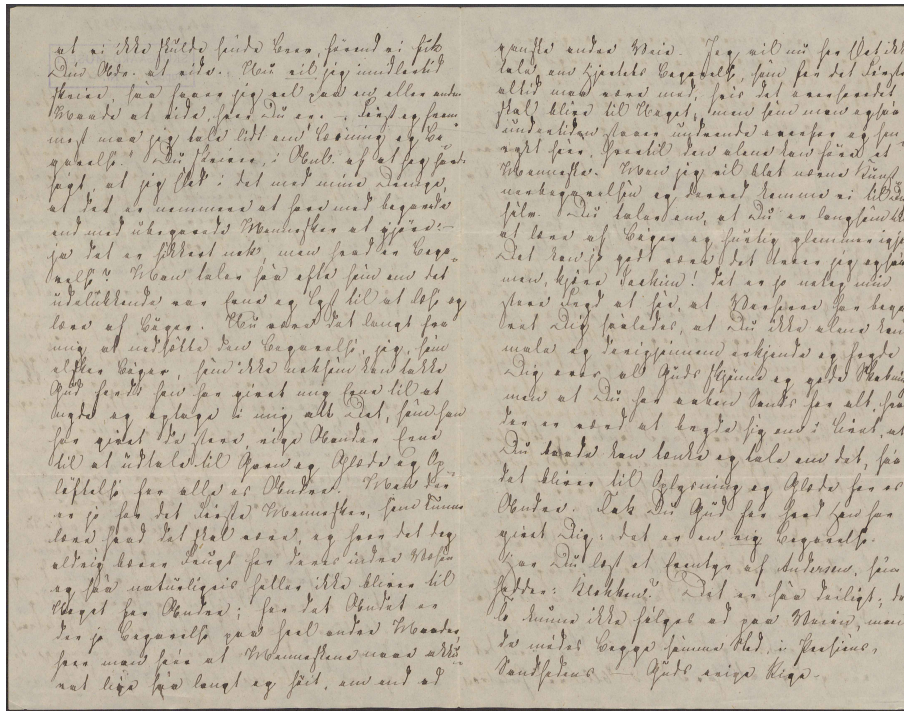 at vi ikke skulde sende Brev, førend vi fik
Din Adr. at vide. Nu vil jeg imidlertid
skrive, saa faaer jeg vel paa en eller anden
Maade at vide, hvor Du er. — Først og frem
mest maa jeg tale lidt om Læsning og Be
gavelse. Du skriver, i Anl. af at jeg har
sagt, at jeg Slet i det med mine Drenge,
at det er nemmere at have med begavede
end med ubegavede Mennesker at gjøre: —
ja det er sikkert nok, men hvad er Bega-
velse? Man taler saa ofte som om det
udelukkende var Evne og Lyst til at læse og
lære af Bøger. Nu være det langt fra
mig at nedsætte den Begavelse, jeg, som
elsker Bøger, som ikke noksom kan takke
Gud fordi han har givet mig Evne til at
nyde og optage i mig alt Det, som han
har givet de store, rige Aander Evne
til at udtale til Gavn og Glæde og Op
løftelse for alle os Andre. Men der
er jo for det Første Mennesker, som kunne
lære hvad det skal være, og hvor det dog
aldrig bærer Frugt for deres indre Væsen
og saa naturligvis heller ikke bliver til
Noget for Andre; for det Andet er
der jo Begavelse paa heel andre Maader,
hvor man seer at Menneskene naae akku-
rat lige saa langt og høit, om end ad
ganske andre Veie. Jeg vil nu her slet ikke
tale om Hjertets Begavelse, som for det Første
altid maa være med, hvis det overhovedet
skal blive til Noget, men som man ogsaa
undertiden staaer undrende overfor og
seer, hvortil den alene kan føre et
Menneske. Men jeg vil blot nævne Kunst
nerbegavelsen og derved komme vi til Dig
selv. Du taler om, at Du er langsom til
at lære af Bøger og hurtig glemmer igjen
Det kan jo godt være det troer jeg ogsaa
men, kjære Joakim! det er jo netop min
store Fryd at see, at Vorherre har bega
vet Dig saaledes, at Du ikke alene kan
male og derigjennem erkjende og fryde
Dig over al Guds skjønne og gode Skabning
men at Du har aaben Sands for alt, hvad
der er værd at bryde sig om i Livet, at
Du baade kan tænke og tale om det, saa
det bliver til Oplysning og Glæde for os
Andre. Tak Du Gud for hvad Han har
givet Dig; det er en rig Begavelse.
Har Du læst et Eventyr af Andersen, som
hedder: Klokken? Det er saa deiligt; de
to kunne ikke følges ad paa Veien, men
de mødes begge samme Sted, i Poesiens,
Sandhedens — Guds evige Rige.